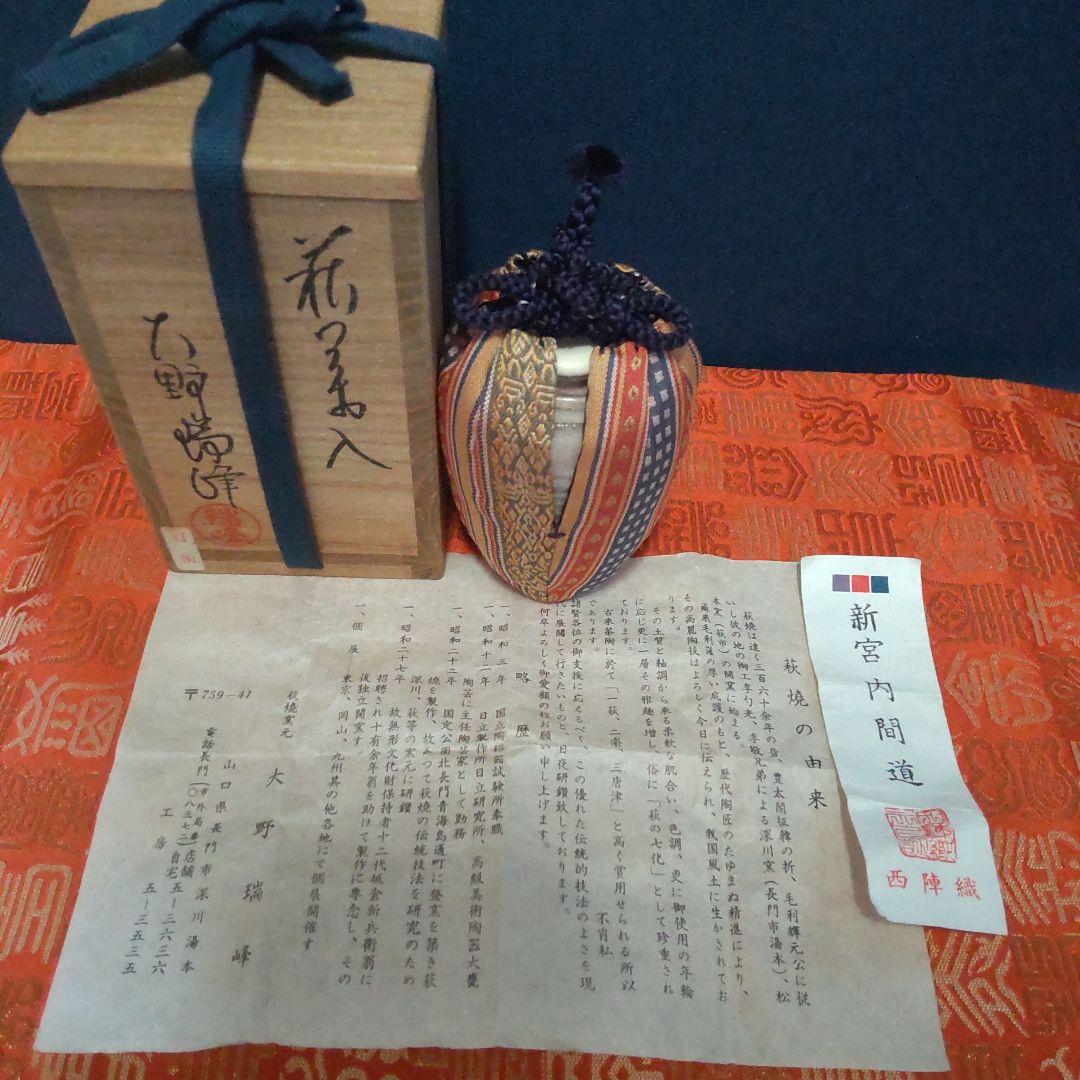 萩茶入
大野瑞峰
新宮内間道
西陣織
萩焼の由来
萩焼は遠く三百六十余年の昔、豊太閤征韓の折、毛利輝元公に従
いし彼の地の陶工李勺光、李敬兄弟による深川窯(長門市湯本)、松
本窯(萩市)の開窯に始まる。
爾来毛利藩の厚い庇護のもと、歴代陶匠のたゆまぬ精進により、
その高麗陶技はよろしく今日に伝えられ、我国風土に生かされてお
ります。
その土質と釉調から来る柔軟な肌合い、色調、更に御使用の年輪
に応じ更に一層その雅趣を増し、俗に「萩の七化」として珍重され
ております。
古来茶陶に於て「一萩、二楽、三唐津」と高く賞用せられる所以
であります。
不肖私
諸賢各位の御支援に応えるべく、この優れた伝統的技法のよさを現
代に展開して行きたいものと、日夜研鑽致しております。
何卒よろしく御愛顧の程お願い申し上げます。
略歴
一、昭和三年 国立陶磁器試験所奉職
一、昭和十一年 日立製作所日立研究所、高級美術陶器大甕
陶芸に主任陶芸家として勤務
一、昭和二十二年 国定公園北長門青海島通町に登窯を築き萩
焼を製作、故あつて萩焼の伝統技法を研究のため
深川、萩等の窯元に研鑽
一、昭和二十七年 故無形文化財保持者十二代坂倉新兵衛翁に
招聘され十有余年翁を助けて製作に専念し、その
後独立開窯す
一、個展 東京、岡山、九州其の他各地にて個展開催す
萩焼窯元
大野瑞峰
〒759-41
山口県長門市深川湯本
電話長門(市外局番〇八三七二)店舗五-三六二六
自宅五-三五三五
工房